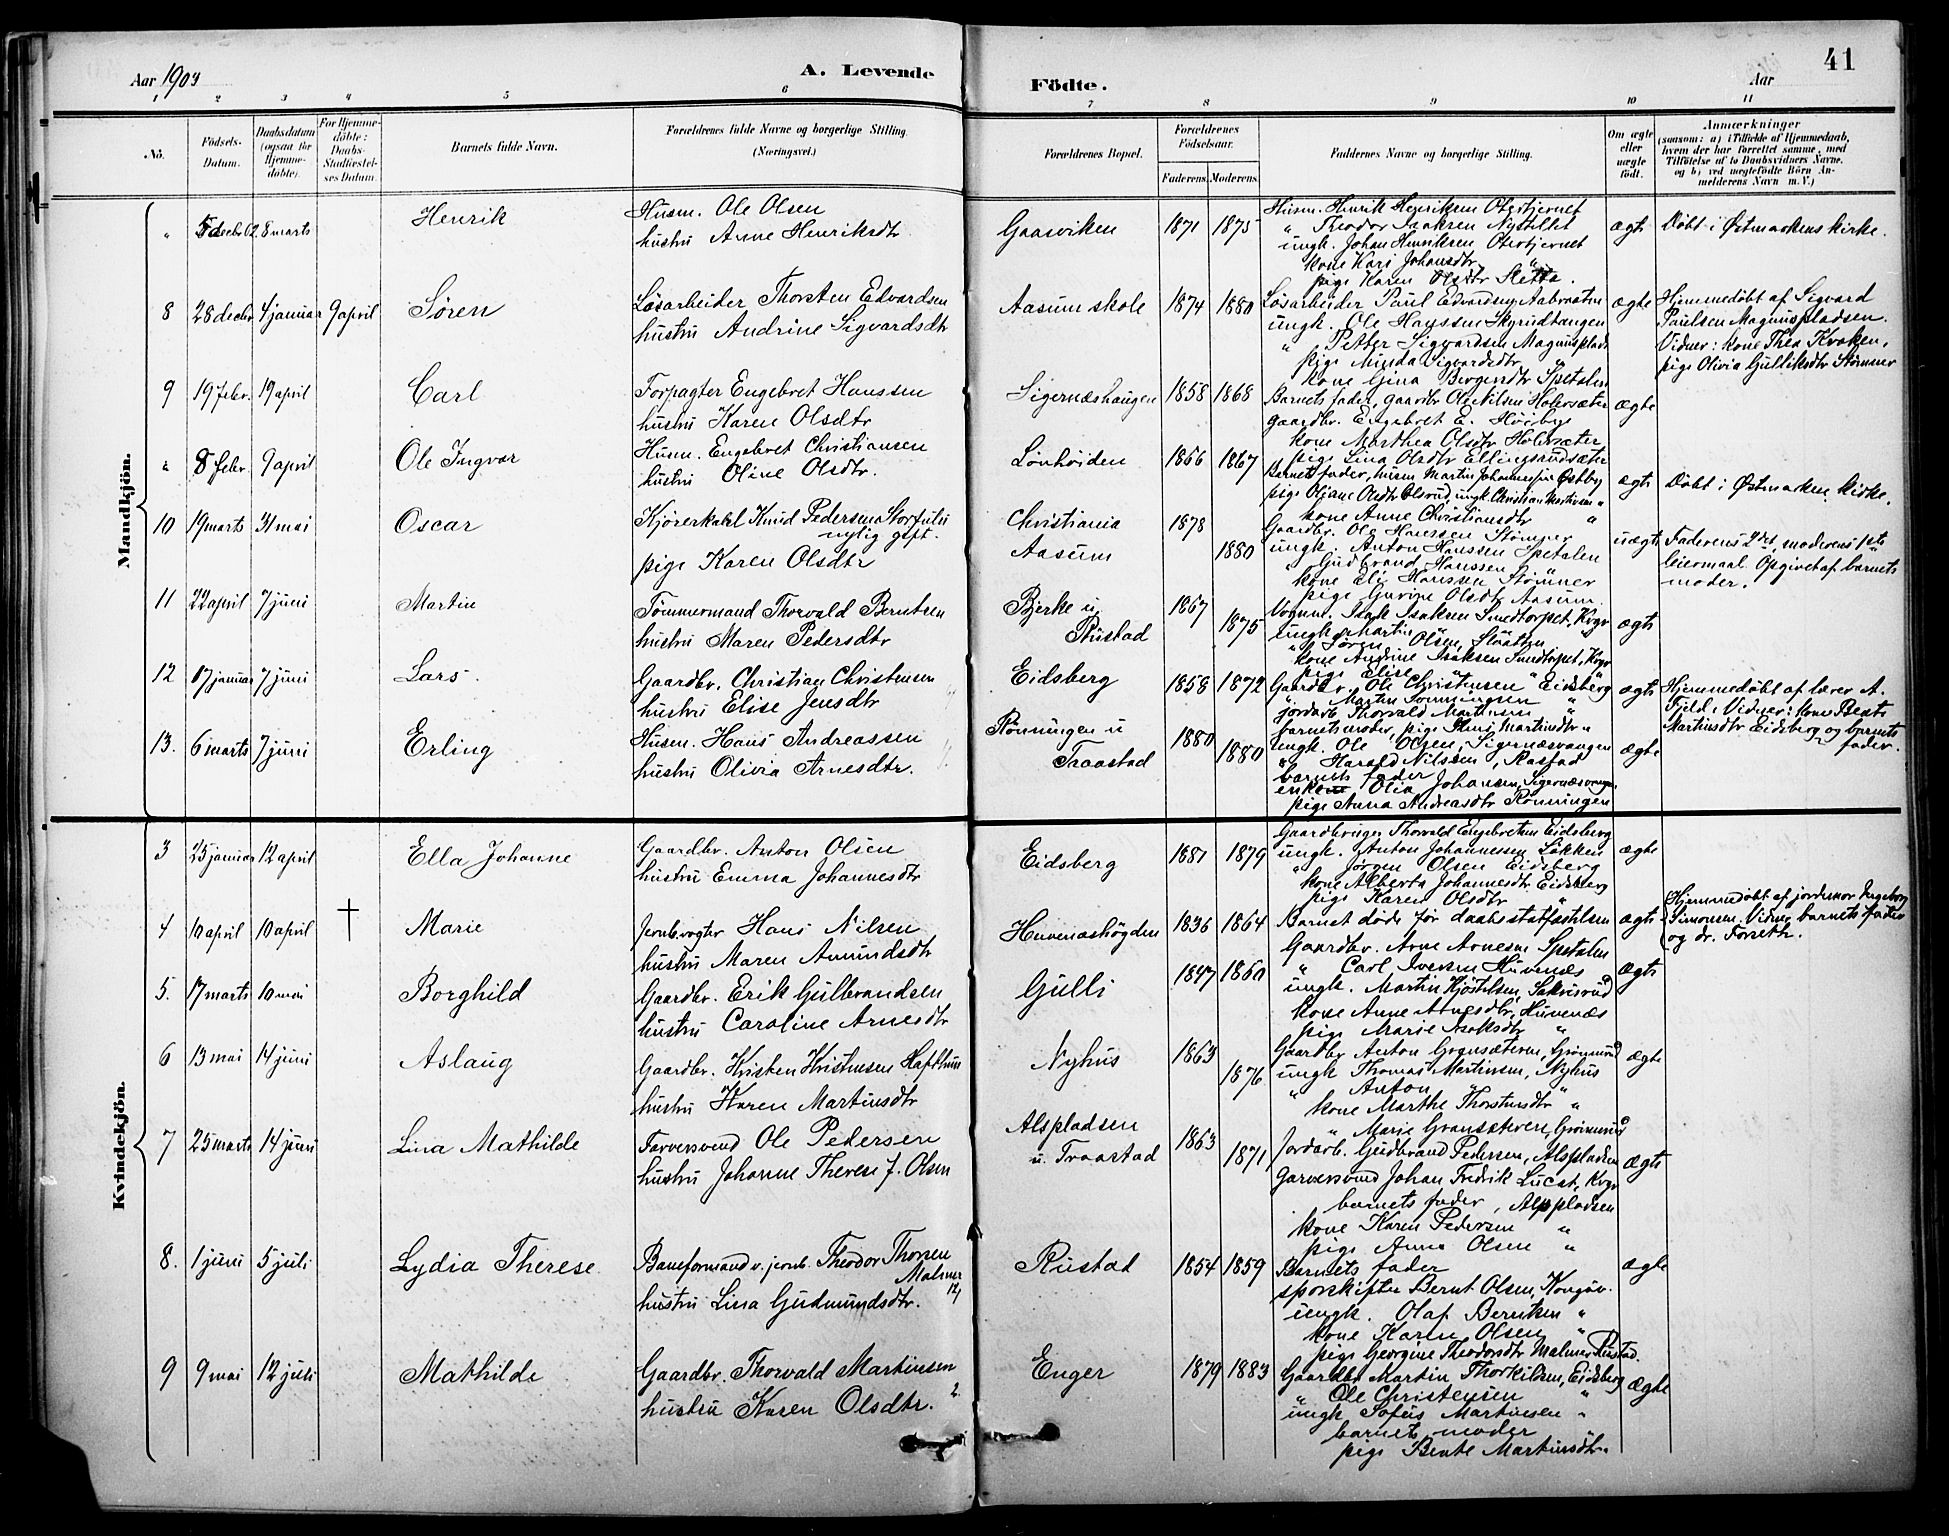 Aar 1903
A. Levende
Födte.
Aar
41
1 2 3 4 5 6 7 8 9 10 11
No.
Födsels-Datum.
Daabsdatum (ogsaa for Hjemme-döbte).
For Hjemme-döbte: Daabs-Stadfæstel-ses Datum.
Barnets fulde Navn.
Forældrenes fulde Navne og borgerlige Stilling.
(Næringsvei.)
Forældrenes Bopæl.
Forældrenes Födselsaar.
Faderens. Moderens.
Faddernes Navne og borgerlige Stilling.
Om ægte eller uægte födt.
Anmærkninger
(saasom: a) i Tilfælde af Hjemmedaab, hvem der har forrettet samme, med Tilföielse af to Daabsvidners Navne, og b) ved uægtefödte Börn An-melderens Navn m. V.)
Mandkjön.
" 5 decbr 02 8 marts Henrik
Husm. Ole Olsen
hustru Anne Henriksdtr
Gaasviken 1871 1875
Husm. Henrik Henriksen Otertjernet
" Theodor Isaksen Nystillet
ungk. Johan Henriksen Otertjernet
kone Kari Johansdtr "
pige Karen Olsdtr Sletta.
ægte
Døbt i Østmarkens kirke.
8 28 decbr 4 januar 9 april Søren
Løsarbeider Thorsten Edvardsen
hustru Andrine Sigvardsdtr
Aasum skole 1874 1880
Løsarbeider Paul Edvardsen Aabraaten
ungk. Ole Hanssen Skyrudtangen
" Petter Sigvardsen Magnusplads
pige Minda Sigvardsdtr "
kone Gina Bergersdtr Spetalen
ægte
Hjemmedøbt af Sigvard
Paulsen Magnuspladsen.
Vidner: kone Thea Kroken,
pige Olivia Gulliksdtr Stømner
9 19 febr. 19 april Carl
Forpagter Engebret Hanssen
hustru Karen Olsdtr
Sigernæshaugen 1858 1868
Barnets fader, gaardbr. Ole Nilsen Holersæter
gaardbr. Engebret E. Høiebye
kone Marthea Olsdtr Holersæter
pige Lina Olsdtr Ellingsrudsæter
ægte
" 8 febr. 9 april Ole Ingvar
Husm. Engebret Christiansen
hustru Oline Olsdtr.
Lønhøiden 1866 1867
Barnets fader, husm Martin Johannessen Østby
pige Oljane Olsdtr Olsrud, ungk. Christian Martinsen "
kone Anne Christiansdtr "
ægte
Døbt i Østmarken kirke.
10 19 marts 31 mai Oscar
Kjørerkarl Knud Pedersen Storfulu
nylig gift.
pige Karen Olsdtr
Christiania 1878
Aasum 1880
Gaardbr. Ole Hanssen Stømner
ungk. Anton Hanssen Spetalen
" Gudbrand Hanssen "
kone Eli Hanssen Stømner
pige Gurine Olsdtr Aasum
uægte
Faderens 2det, moderens 1ste
leiermaal. Opgivet af barnets
moder.
11 22 april 7 juni Martin
Tømmermand Thorvald Berntsen
hustru Maren Pedersdtr
Bjerke u. Rustad 1867 1875
Vognm. Isak Isaksen Smedtorpet, Kvgr
ungk. Martin
" Søren Olsen, Slaatten
kone Andrine Isaksen Smedtorpet, Kvgr
pige Elise
ægte
12 17 januar 7 juni Lars
Gaardbr. Christian Christensen
hustru Elise Jensdtr
Eidsberg 1858 1872
Gaardbr. Ole Christensen Eidsberg
" Martin "
jordarb. Thorvald Martinsen "
barnets moder, pige Martinsdtr "
ægte
Hjemmedøbt af lærer A.
Fjeld. Vidner: kone Beate
Martinsdtr Eidsberg og barnets
fader.
13. 6 marts 7 juni Erling
Husm. Hans Andreassen
hustru Olivia Arnesdtr.
Rønningen u Traastad 1880 1880
ungk. Ole Olsen, Sigernæsvangen
" Harald Nilssen, Rastad
barnets fader
enke Olia Johansen, Sigernæsvangen
pige Anna Andreasdtr Rønningen
ægte
Kvindekjön.
3 25 januar 12 april Ella Johanne
Gaardbr. Anton Olsen
hustru Emma Johannesdtr
Eidsberg 1881 1879
Gaardbruger Thorvald Engebretsen Eidsberg
ungk. Anton Johannessen Løkken
" Jørgen Olsen Eidsberg
kone Alberta Johannesdtr Eidsberg
pige Karen Olsdtr "
ægte
4 10 april 10 april † Marie
Jernb.vogter Hans Nilsen
hustru Maren Amundsdtr
Huvenæshøgden 1836 1864
Barnet døde før daabsstatfæstelsen
ægte
Hjemmedøbt af jordemor Ingeborg
Simonsen. Vidner barnets fader
og dr. Forseth.
5. 17 marts 10 mai Borghild
Gaardbr. Erik Gulbrandsen
hustru Caroline Arnesdtr
Gulli 1847 1860
Gaardbr. Arne Arnesen Spetalen
" Carl Iversen Huvenæs
ungk. Martin Kjøstelsen, Sakrisrud
kone Anne Arnesdtr, Huvenæs
pige Marie Isaksdtr "
ægte
6 13 mai 14 juni Aslaug
Gaardbr. Kristen Kristensen Hafthun
hustru Karen Martinsdtr
Nyhus 1863 1876
Gaardbr Anton Gransæteren, Grønnerud
ungk Thomas Martinsen, Nyhus
" Anton " "
kone Marthe Thorstensdtr "
" Marie Gransæteren, Grønnerud
ægte
7 25 marts 14 juni Lina Mathilde
Farversvend Ole Pedersen
hustru Johanne Therese J. Olsen
Alspladsen
u. Traastad 1863 1871
Jordarb. Gudbrand Pedersen, Alspladsen
Garversvend Johan Fredrik Lucat, Kvgr
barnets fader, Alspladsen
kone Karen Pedersen "
pige Anna Olsen "
ægte
8. 1 juni 5 juli Lydia Therese
Baneformand v. jernb. Theodor Thorsen
Malmer
hustru Lina Gudmundsdtr.
Rustad 1854 1859
Barnets fader
sporskifter Bernt Olsen, Kongsv.
ungk. Olaf Berntsen "
kone Karen Olsen "
pige Georgine Theodorsdtr Malmer Rustad.
ægte
9 9 mai 12 juli Mathilde
Gaardbr. Thorvald Martinsen
hustru Karen Olsdtr.
Enger 1879 1883
Gaardbr Martin Thorkildsen, Eidsberg
" Ole Christensen "
ungk Sofus Martinsen "
barnets moder
pige Beate Martinsdtr "
ægte